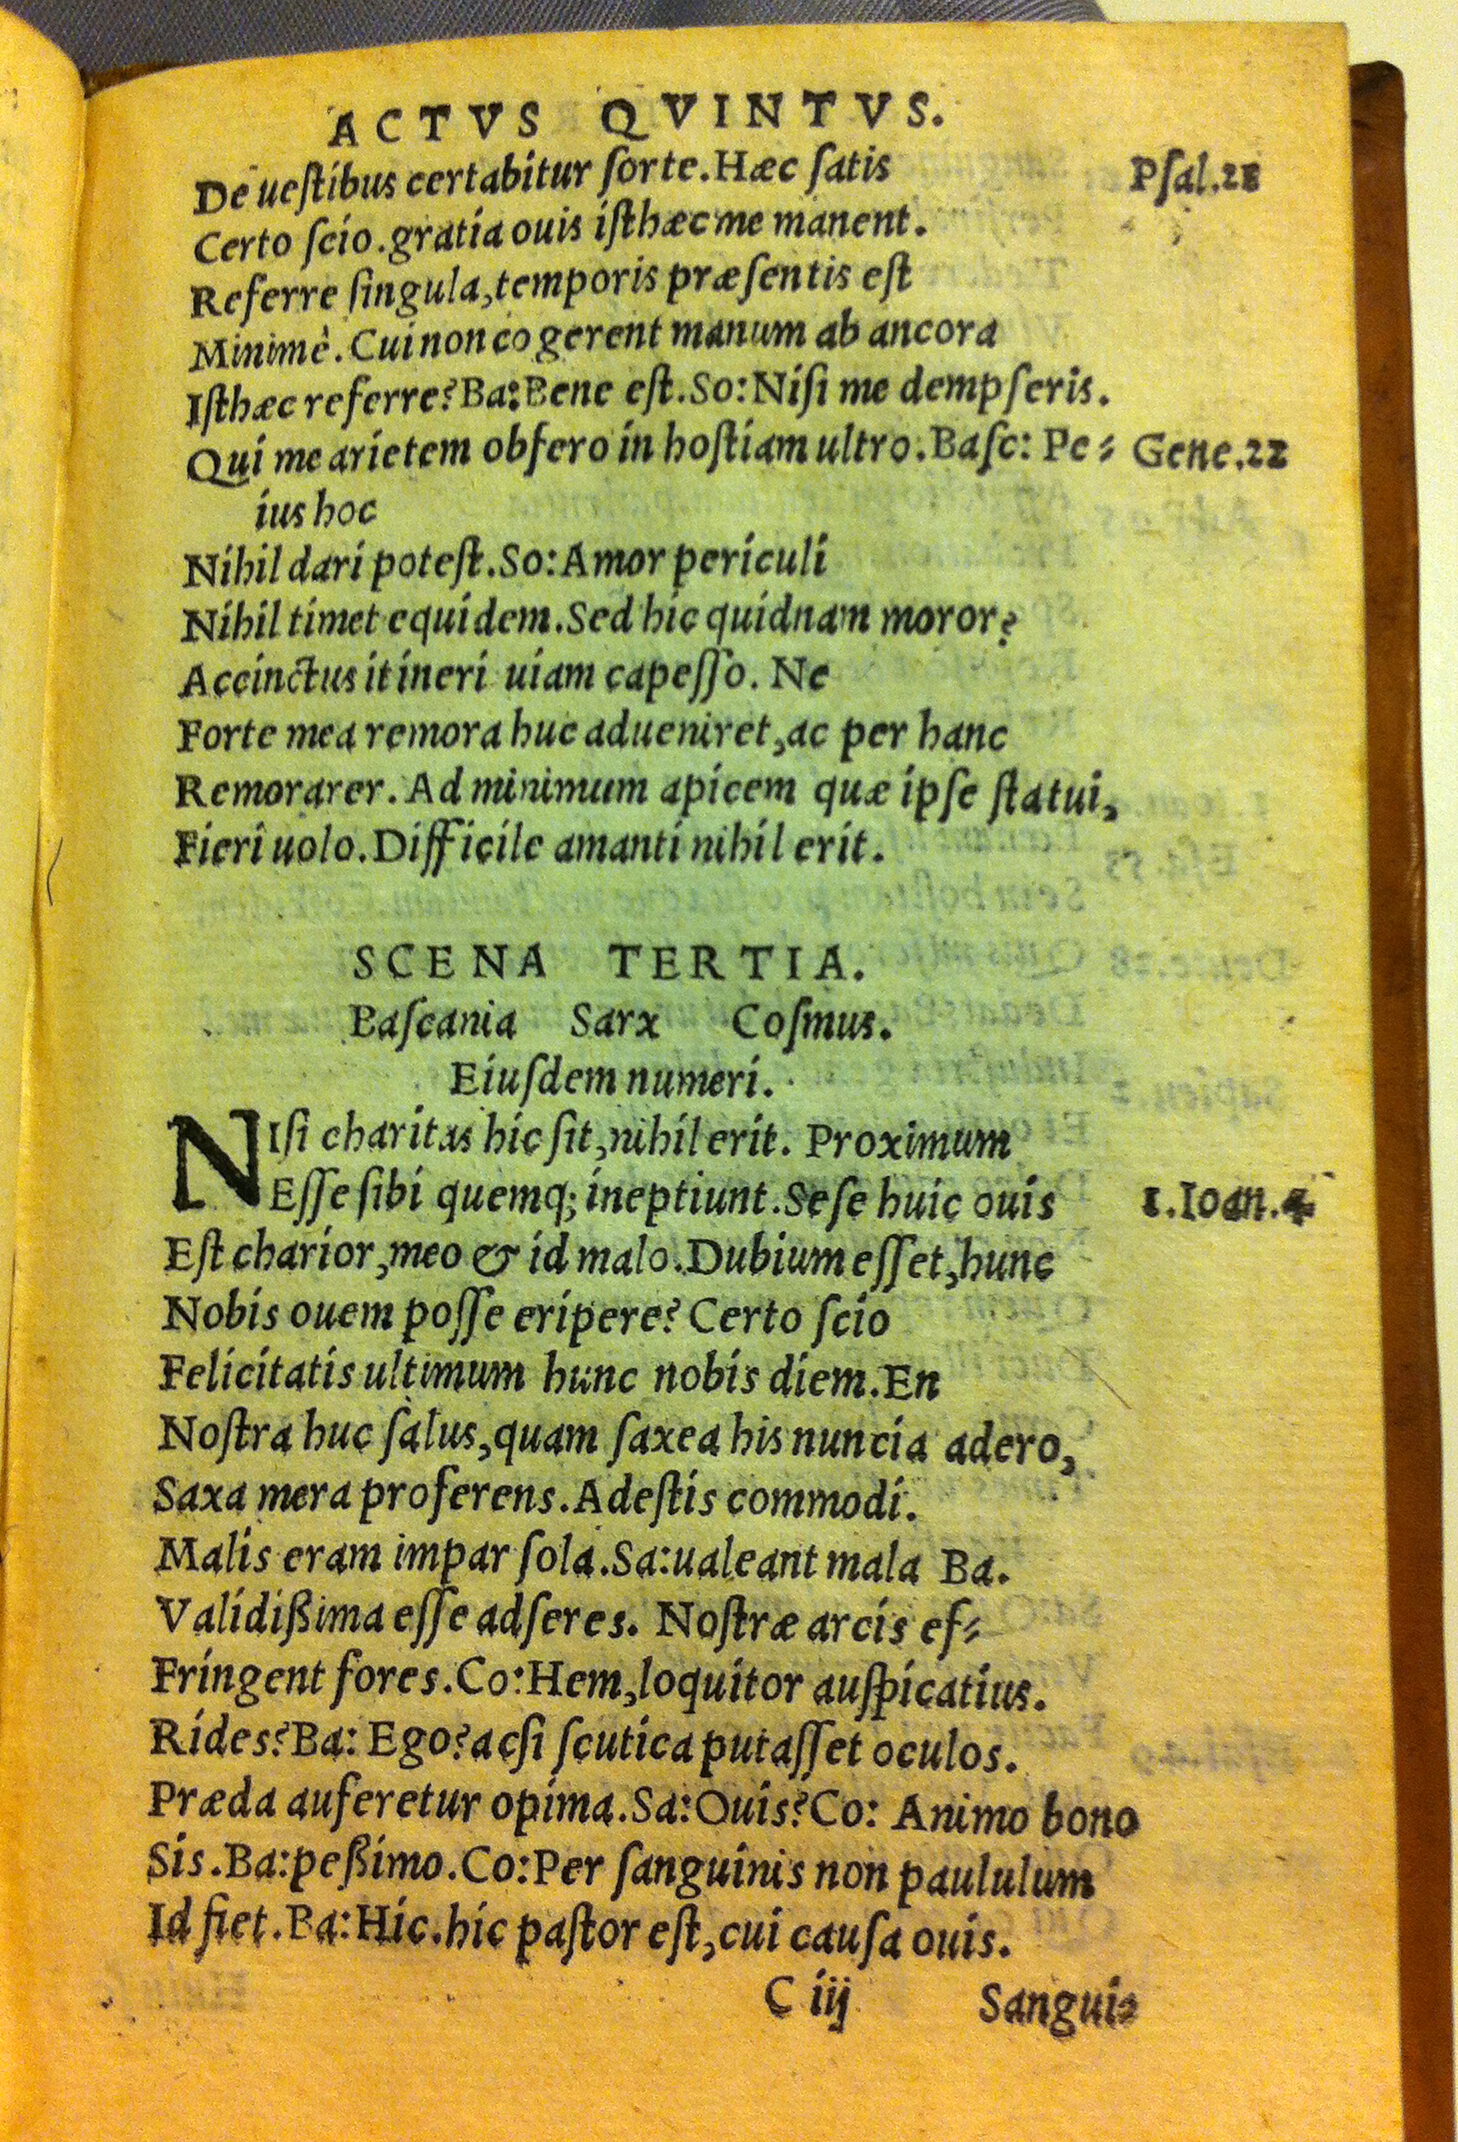 ACTVS QVINTVS.
De ueſtibus certabitur ſorte. Hæc ſatis Pſal.21
Certo ſcio. gratia ouis iſthæc me manent.
Referre ſingula, temporis præſentis eſt
Minimè. Cui non cogerent manum ab ancora
Iſthæc referre? Ba: Bene eſt. So: Niſi me dempſeris.
Qui me arietem obfero in hoſtiam ultro. Baſc: Pe⸗ Gene.22
ius hoc
Nihil dari poteſt. So: Amor periculi
Nihil timet equidem. Sed hic quidnam moror?
Accinctus itineri uiam capeſſo. Ne
Forte mea remora huc adueniret, ac per hanc
Remorarer. Ad minimum apicem quæ ipſe ſtatui,
Fieri uolo. Difficile amanti nihil erit.
SCENA TERTIA.
Baſcania Sarx Coſmus.
Eiuſdem numeri.
NIſi charitas hic ſit, nihil erit. Proximum
Eſſe ſibi quemq; ineptiunt. Seſe huic ouis 1.Ioan.4
Eſt charior, meo & id malo. Dubium eſſet, hunc
Nobis ouem poſſe eripere? Certo ſcio
Felicitatis ultimum hunc nobis diem. En
Noſtra huc ſalus, quam ſaxea his nuncia adero,
Saxa mera proferens. Adeſtis commodi.
Malis eram impar ſola. Sa: ualeant mala Ba.
Validißima eſſe adſeres. Noſtræ arcis ef⸗
Fringent fores. Co: Hem, loquitor auſpicatius.
Rides? Ba: Ego? acſi ſcutica putaſſet oculos.
Præda auferetur opima. Sa: Ouis? Co: Animo bono
Sis. Ba: peßimo. Co: Per ſanguinis non paululum
Id fiet. Ba: Hic. hic paſtor eſt, cui cauſa ouis.
C iij Sangui⸗